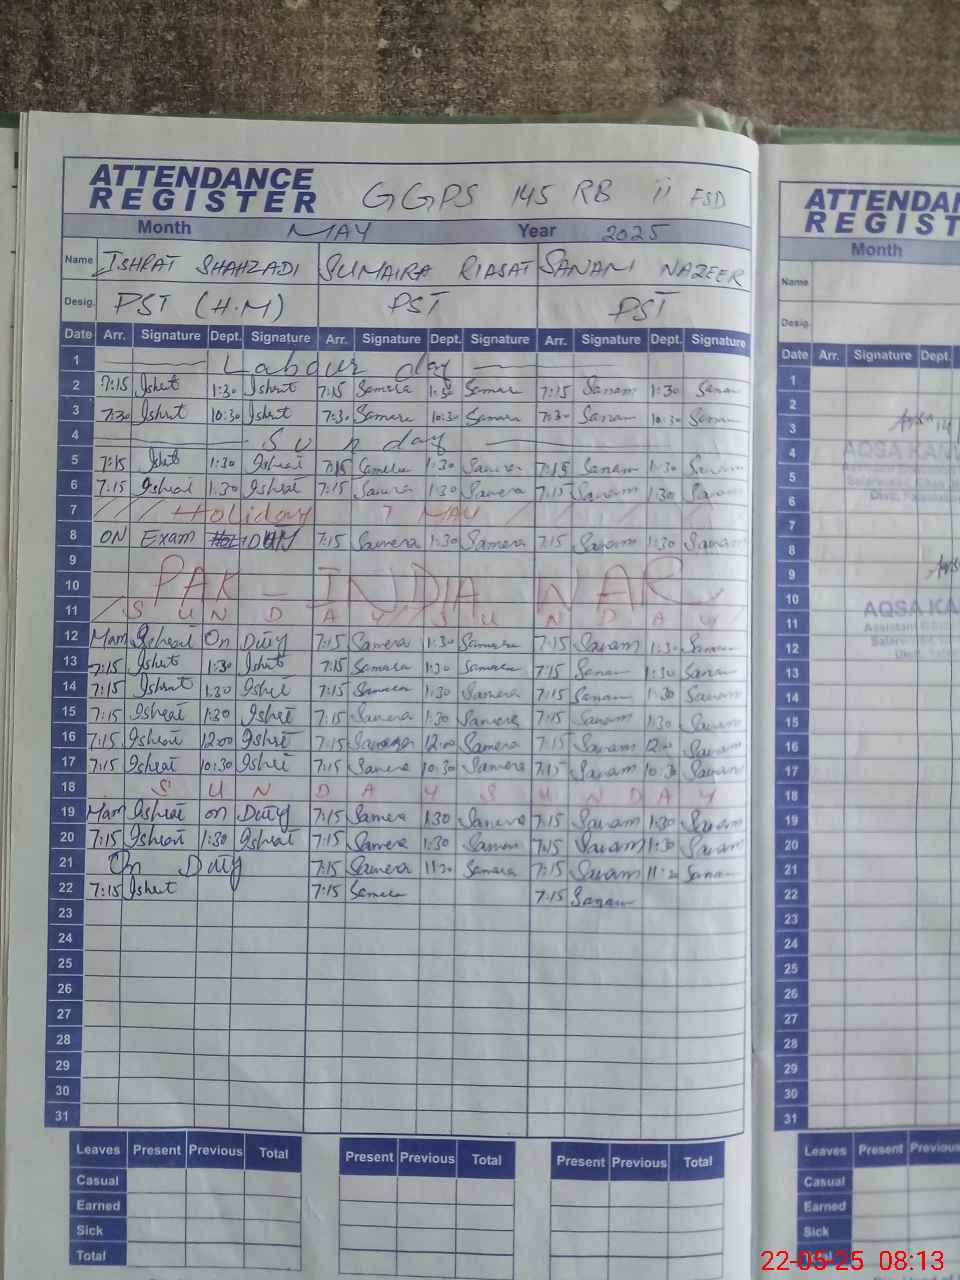 ATTENDANCE REGISTER GGPS 145 RB ii FSD
Month MAY Year 2025
Name ISHRAT SHAHZADI SUMAIRA RIASAT SANAM NAZEER
Desig. PST (H.M) PST PST
Date Arr. Signature Dept. Signature Arr. Signature Dept. Signature Arr. Signature Dept. Signature
1 Labour day
2 7:15 Ishrt 1:30 Ishrat 7:15 Samera 1:30 Samera 7:15 Sanam 1:30 Sanam
3 7:30 Ishrat 10:30 Ishrat 7:30 Samera 10:30 Samera 7:30 Sanam 10:30 Sanam
4 Sunday
5 7:15 Ishrt 1:30 Ishrat 7:15 Samera 1:30 Samera 7:15 Sanam 1:30 Sanam
6 7:15 Ishrat 1:30 Ishrat 7:15 Samera 1:30 Samera 7:15 Sanam 1:30 Sanam
7 Holiday 7 MAY
8 ON Exam 7:15 Samera 1:30 Samera 7:15 Sanam 1:30 Sanam
9
10 PAK - INDIA WAR
11 S U N D A Y S U N D A Y
12 Mam Ishrat On Duty 7:15 Samera 1:30 Samera 7:15 Sanam 1:30 Sanam
13 7:15 Ishrt 1:30 Ishrt 7:15 Samera 1:30 Samera 7:15 Sanam 1:30 Sanam
14 7:15 Ishrat 1:30 Ishrt 7:15 Samera 1:30 Samera 7:15 Sanam 1:30 Sanam
15 7:15 Ishrat 1:30 Ishrt 7:15 Samera 1:30 Samera 7:15 Sanam 1:30 Sanam
16 7:15 Ishrat 12:00 Ishrt 7:15 Samera 12:00 Samera 7:15 Sanam 12:00 Sanam
17 7:15 Ishrat 10:30 Ishrt 7:15 Samera 10:30 Samera 7:15 Sanam 10:30 Sanam
18 S U N D A Y S U N D A Y
19 Mam Ishrat on Duty 7:15 Samera 1:30 Samera 7:15 Sanam 1:30 Sanam
20 7:15 Ishrat 1:30 Ishrat 7:15 Samera 1:30 Samera 7:15 Sanam 1:30 Sanam
21 On Duty 7:15 Samera 11:30 Samera 7:15 Sanam 11:30 Sanam
22 7:15 Ishrt 7:15 Samera 7:15 Sanam
23
24
25
26
27
28
29
30
31
Leaves Present Previous Total Present Previous Total Present Previous Total
Casual
Earned
Sick
Total
ATTENDAN
REGIST
Month
Name
Desig.
Date Arr. Signature Dept.
1
2
3
4 AQSA KANW
5
6
7
8
9
10 AQSA KA
11
12
13
14
15
16
17
18
19
20
21
22
23
24
25
26
27
28
29
30
31
Leaves Present Previous
Casual
Earned
Sick
Total
22-05-25 08:13